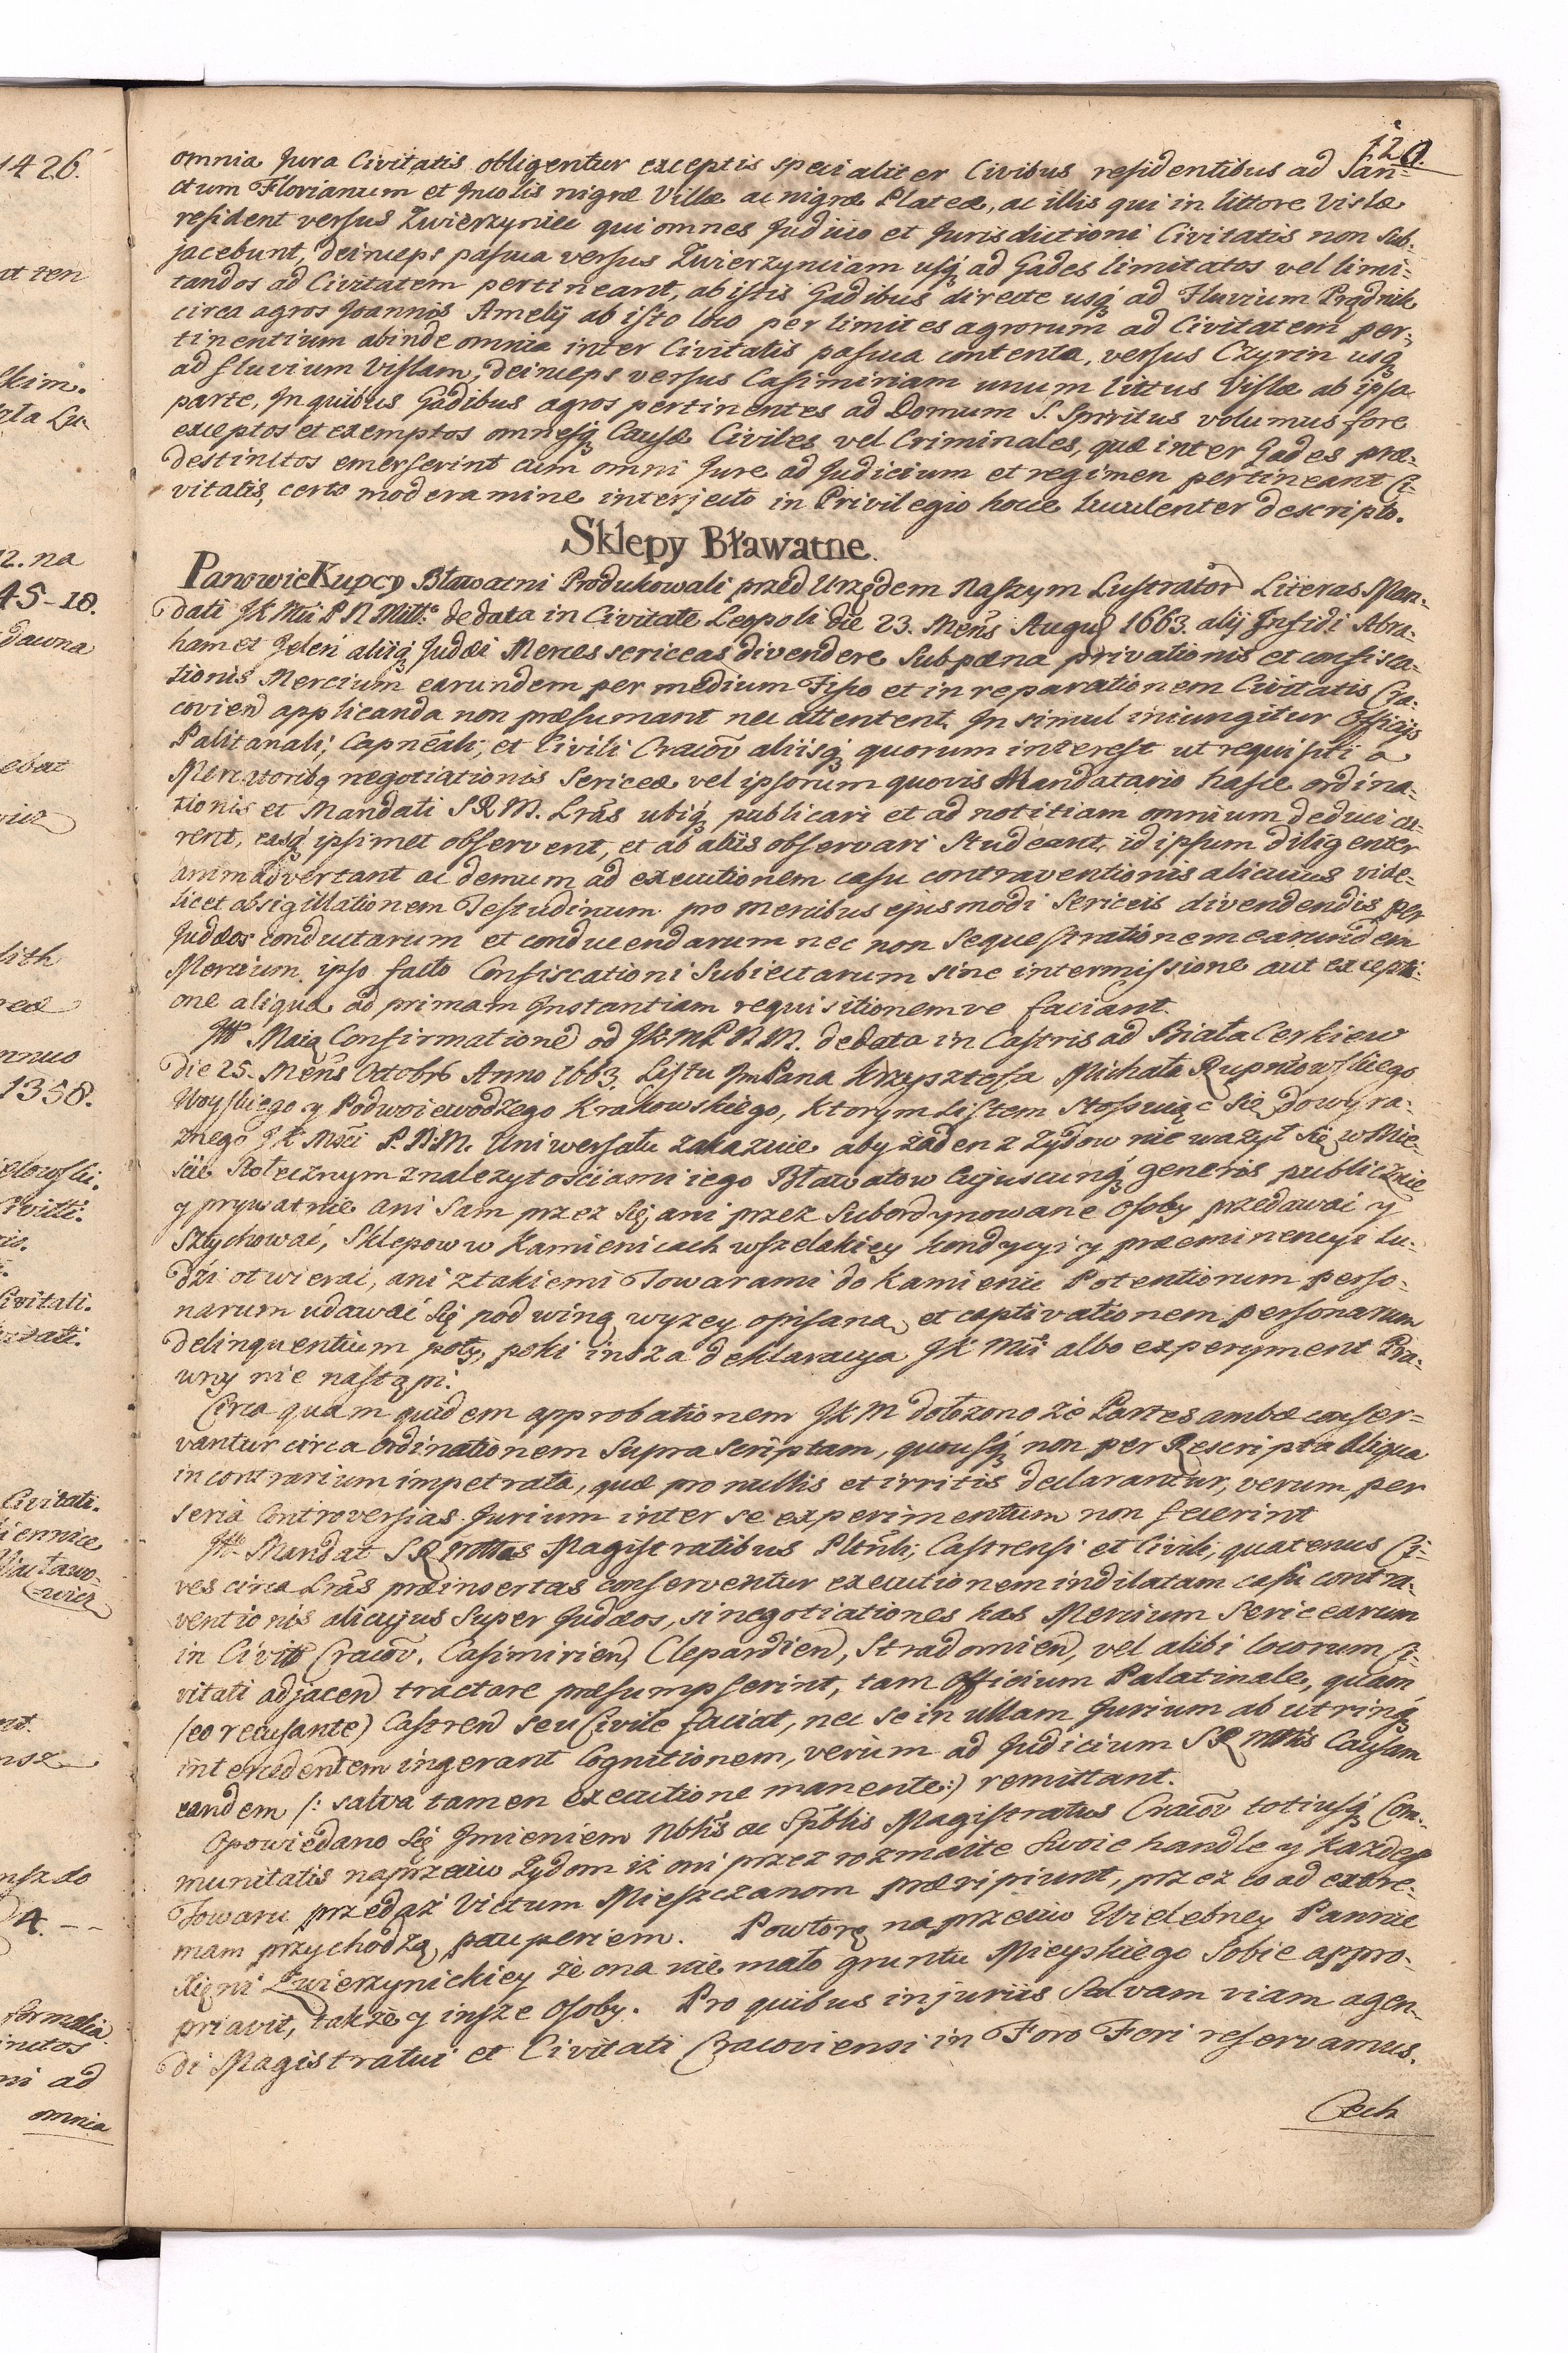 120.
omnia Jura Civitatis obligentur exceptis specialiter Civibus residentibus ad San=
ctum Florianum et Incolis nigræ Villæ ac nigræ Plateæ, ac illis qui in littore Vislæ
resident versus Zwierzyniec qui omnes Judicio et Jurisdictioni Civitatis non sub=
jacebunt, deinceps pascua versus Zwierzynciam usq; ad Gades limitatos vel limi=
tandos ad Civitatem pertineant, ab istis Gadibus directe usq; ad Fluvium Prądnik
circa agros Joannis Amelij ab isto loco per limites agrorum ad Civitatem per=
tinentium abinde omnia inter Civitatis pascua contenta, versus Czyrin usq;
ad fluvium Vislam, deinceps versus Casimiriam unum littus Vislæ ab ipsa
parte, In quibus Gadibus agros pertinentes ad Domum S. Spiritus volumus fore
exceptos et exemptos omnesq; Causæ Civiles vel Criminales, quæ inter Gades præ=
destinctos emerserint cum omni Jure ad Judicium et regimen pertineant Ci=
vitatis, certo moderamine interjecto in Privilegio hocce luculenter descripto.
Sklepy Bławatne.
Panowie Kupcy Bławatni Produkowali przed Urzędem Naszym Lustrator Literas Man=
dati JK Mci P N Miłł: de data in Civitate Leopoli die 23. Mens Augus 1663. alij Infidi Abra=
ham et Jeleń aliiq; Judæi Merces sericeas divendere Sub pæna privationis et confisca=
tionis Mercium earundem per medium Fisco et in reparationem Civitatis Cra=
covien applicanda non præsumant nec attentent. In simul iniungitur Officijs
Palitanali, Capneali, et Civili Cracov aliisq; quorum interest ut requisiti a
Mercatoribq negotiationis Sericeæ vel ipsorum quovis Mandatario hasce ordina=
tionis et Mandati S R M. Lras ubiq; publicari et ad notitiam omnium deduci cu=
rent, easq; ipsimet observent, et ab aliis observari Studeant, id ipsum diligenter
animadvertant ac demum ad executionem casu contraventionis alicuius vide=
licet obsigillationem Testudinum pro mercibus ejusmodi Sericeis divendendis per
Judæos conductarum et conducendarum nec non Sequestrationem earundem
Mercium ipso facto Confiscationi Subiectarum sine intermissione aut excepti=
one aliqua ad primam Instantiam requisitionemve faciant.
Itt Maią Confirmatione od JK M P N M. de data in Castris ad Biała Cerkiew
Die 25. Mens Octobr Anno 1663. Listu Jm Pana Krzysztofa Michała Rupniowskiego
Woyskiego y Podwoiewodzego Krakowskiego, ktorym Listem stosuiąc się do wyra=
znego JK Msci P. N. M. Uniwersału zakazuie aby żaden z Zydow nie ważył się w Mie=
ście Stołecznym z należytościami iego Bławatow cujuscunq; generis publicznie
y prywatnie ani sam przez się, ani przez Subordynowane Osoby przedawać y
Sztychować, Sklepow w Kamienicach wszelakiey kondycyi y præeminencyi Lu=
dzi otwierać, ani z takiemi Towarami do Kamienic Potentiorum perso=
narum udawać się pod winą wyzey opisaną, et captivationem personarum
delinquentium poty, poki insza deklaracya JK Mci albo experyment Pra=
wny nie nastąpi.
Circa quam quidem approbationem JK M dołożono że Partes ambæ conser=
vantur circa Ordinationem Supra scriptam, quousq; non per Rescripta aliqua
in contrarium impetrata, quæ pro nullis et irritis declarantur, verum per
seria Controversias Jurium inter se experimentum non fecerint
Itt Mandat S R Mttas Magistratibus Pltnli, Castrensi et Civili, quatenus Ci=
ves circa Lras præinsertas conserventur executionem indilatam casu contra=
ventionis alicujus Super Judæos, si negotiationes has Mercium Sericearum
in Civitt Cracov. Casimirien, Clepardien, Stradomien, vel alibi locorum Ci=
vitati adjacen tractare præsumpserint, tam Officium Palatinale, quam
(eo recusante) Castren seu Civile faciat, nec se in ullam Jurium ab utrinq;
intercedentem ingerant Cognitionem, verum ad Judicium S R Mttis Causam
eandem /: salva tamen executione manente:) remittant.
Opowiedano się Imieniem Nblis ac Spblis Magistratus Cracov totiusq; Com=
munitatis naprzeciw Zydom iż oni przez rozmaite swoie handle y każdego
Towaru przedaż Victum Mieszczanom præripiunt, przez co ad extre=
mam przychodzą pauperiem. Powtorę naprzeciw Wielebney Pannie
Xięni Zwierzynickiey że ona nie mało gruntu Mieyskiego sobie appro=
priavit, także y insze Osoby. Pro quibus injuriis Salvam viam agen=
di Magistratui et Civitati Cracoviensi in Foro Fori reservamus.
Cech